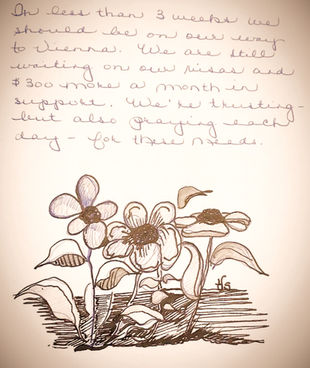 In less than 3 weeks we
should be on our way
to Vienna. We are still
waiting on our visas and
$300 more a month in
support. We're trusting -
but also praying each
day - for these needs.
HG